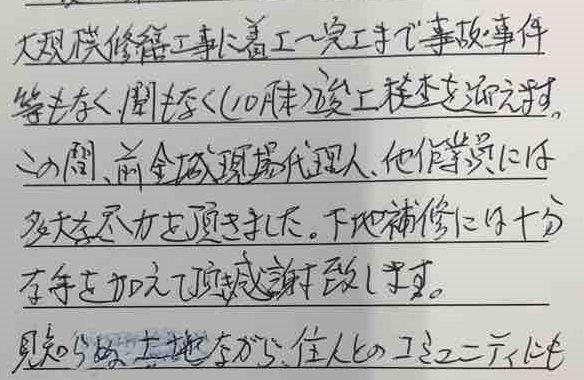 大規模修繕工事に着工～完工まで事故・事件
等もなく、間もなく(10月末)竣工検査を迎えます。
この間、前 現場代理人、他作業員には
多大な尽力を頂きました。下地補修には十分
な手を加えて頂き感謝致します。
見知らぬ土地ながら、住人とのコミュニティにも